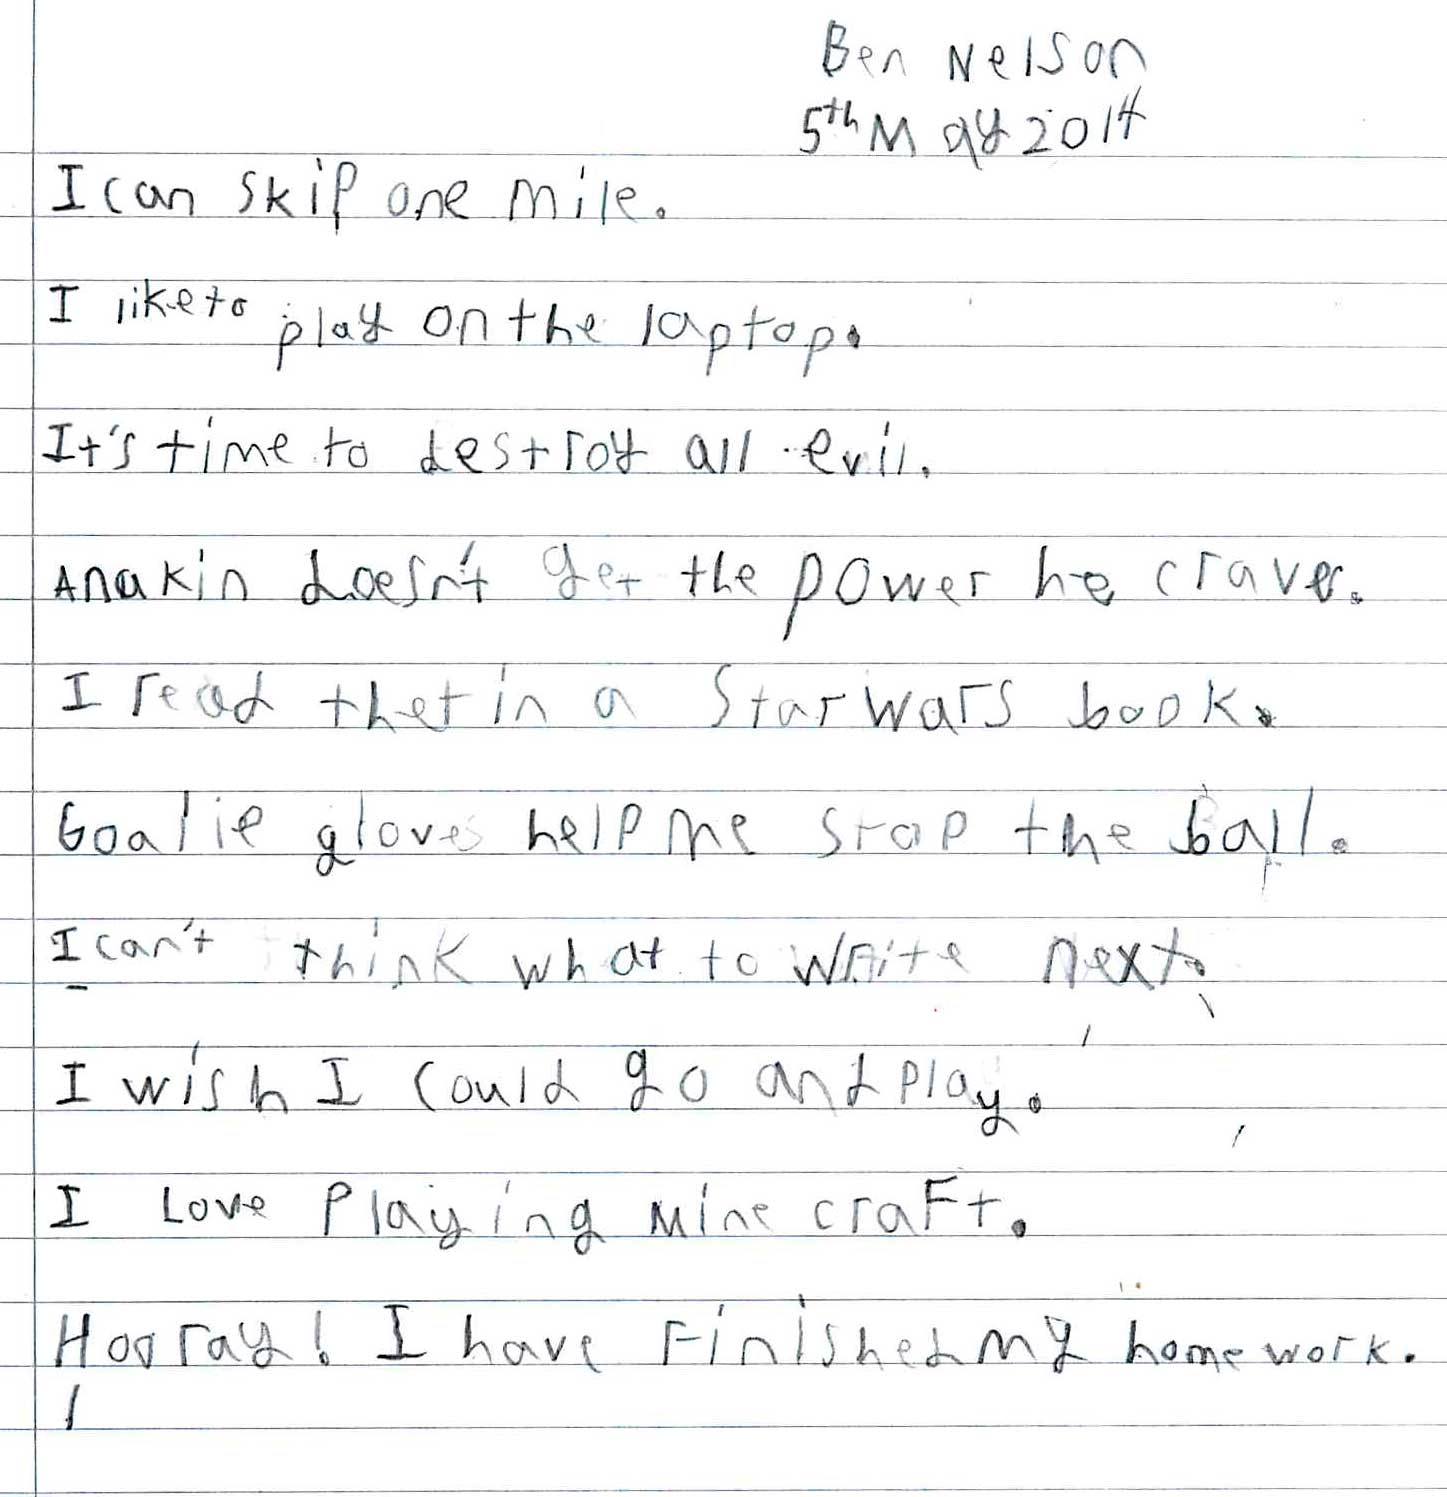 Ben Nelson
5th May 2014
I can skip one mile.
I like to play on the laptop.
It's time to destroy all evil.
Anakin doesn't get the power he craves.
I read thet in a Star Wars book.
Goalie gloves help me stop the ball.
I can't think what to write next.
I wish I could go and play.
I Love Playing Mine craFt.
Hooray! I have Finished my home work.